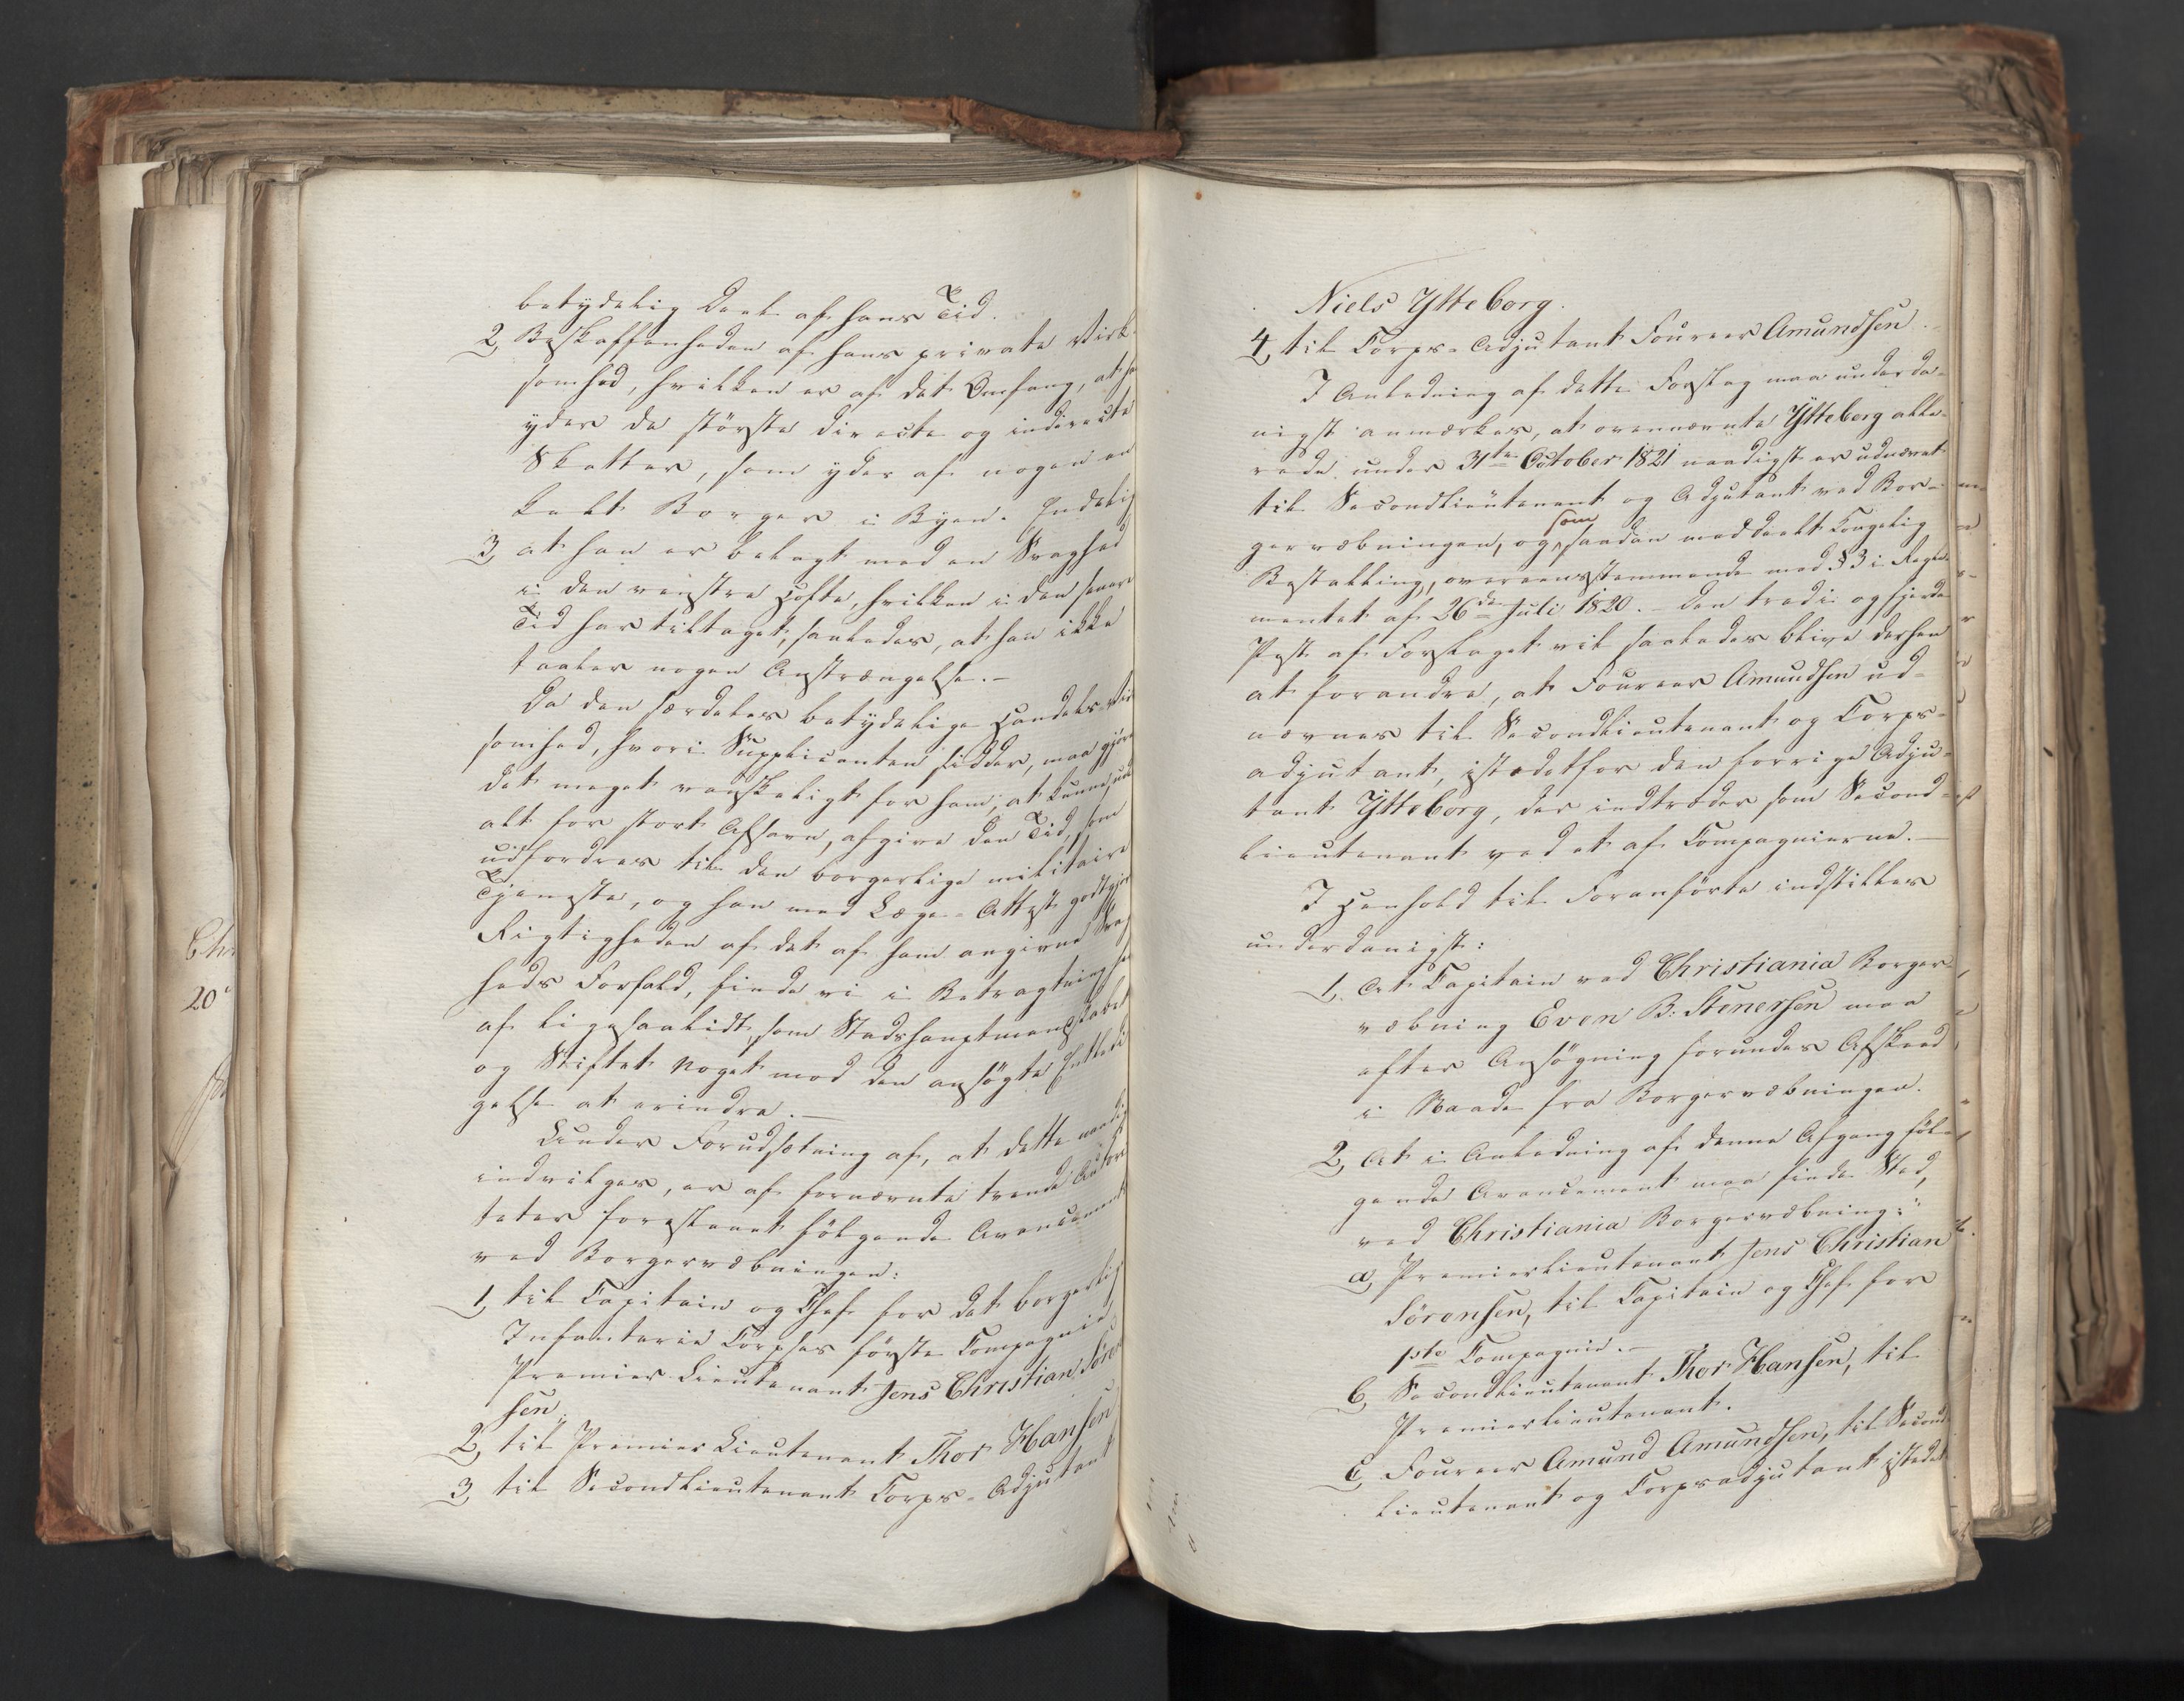 betydelig Deel af hans Tid.
2, Beskaffenheden af hans private Virk-
somhed, hvilken er af det Omfang, at han
yder de störste directe og indirecte
Skatter, som ydes af nogen en
kelt Borger i Byen. Endelig
3, at han er belagt med en Svaghed
i den venstre Hofte, hvilken i den senere
Tid har tiltaget, saaledes, at han ikke
taaler nogen Anstrængelse.-
Da den særdeles betydelige Handels-Vir
somhed, hvori Supplicanten sidder, maa gjøre
det meget vanskeligt for ham, at kunne, uden
alt for stort Afsavn, afgive den Tid, som
udfordres til den borgerlige militaire
Tjeneste, og han med Læge-Attest godtgjør
Rigtigheden af det af ham angivne Svag
heds Forhold, finde vi i Betragtning her
af ligesaalidt, som Stadshauptmandskabet
og Stiftet Noget mod den ansögte Entledi
gelse at erindre.-
Under Forudsætning af, at dette naadigst
indvilges, er af fornævnte trende Autori
teter foreslaaet fölgende Avancement
ved Borgervæbningen:
1, til Capitain og Chef for det borgerlige
Infanterie Corpses förste Compagnie
Premier Lieutenant Jens Christian Sören
sen.
2, til Premier Lieutenant Thor Hansen
3, til SecondLieutenant Corps-Adjutant
Niels Ytteborg.
4, til Corps-Adjutant Foureer Amundsen.
I Anledning af dette Forslag maa underda-
nigst anmærkes, at ovennævnte Ytteborg alle-
rede under 31te October 1821 naadigst er udnævnt
til Secondlieutenant og Adjutant ved Bor-
gervæbningen, og som saadan meddeelt Kongelig
Bestalling, overeensstemmende med § 3 i Regle-
mentet af 26de Juli 1820.- Den tredie og fjerde
Post af Forslaget vil saaledes blive derhen
at forandre, at Foureer Amundsen ud-
nævnes til Secondlieutenant og Corps-
adjutant, istedetfor den forrige Adju-
tant Ytteborg, der indtræder som Second-
lieutenant ved et af Compagnierne.-
I Henhold til Foranförte indstilles
underdanigst:
1. At Capitain ved Christiania Borger-
væbning Even B: Stenersen maa
efter Ansögning forundes Afskeed
i Naade fra Borgervæbningen.
2, At i Anledning af denne Afgang föl-
gende Avancement maa finde Sted,
ved Christiania Borgervæbning:
a, Premierlieutenant Jens Christian
Sörensen, til Capitain og Chef for
1ste Compagnie.-
b, Secondlieutenant Thor Hansen, til
Premierlieutenant.
c, Foureer Amund Amundsen, til Second
lieutenant og Corpsadjutant istedet
20